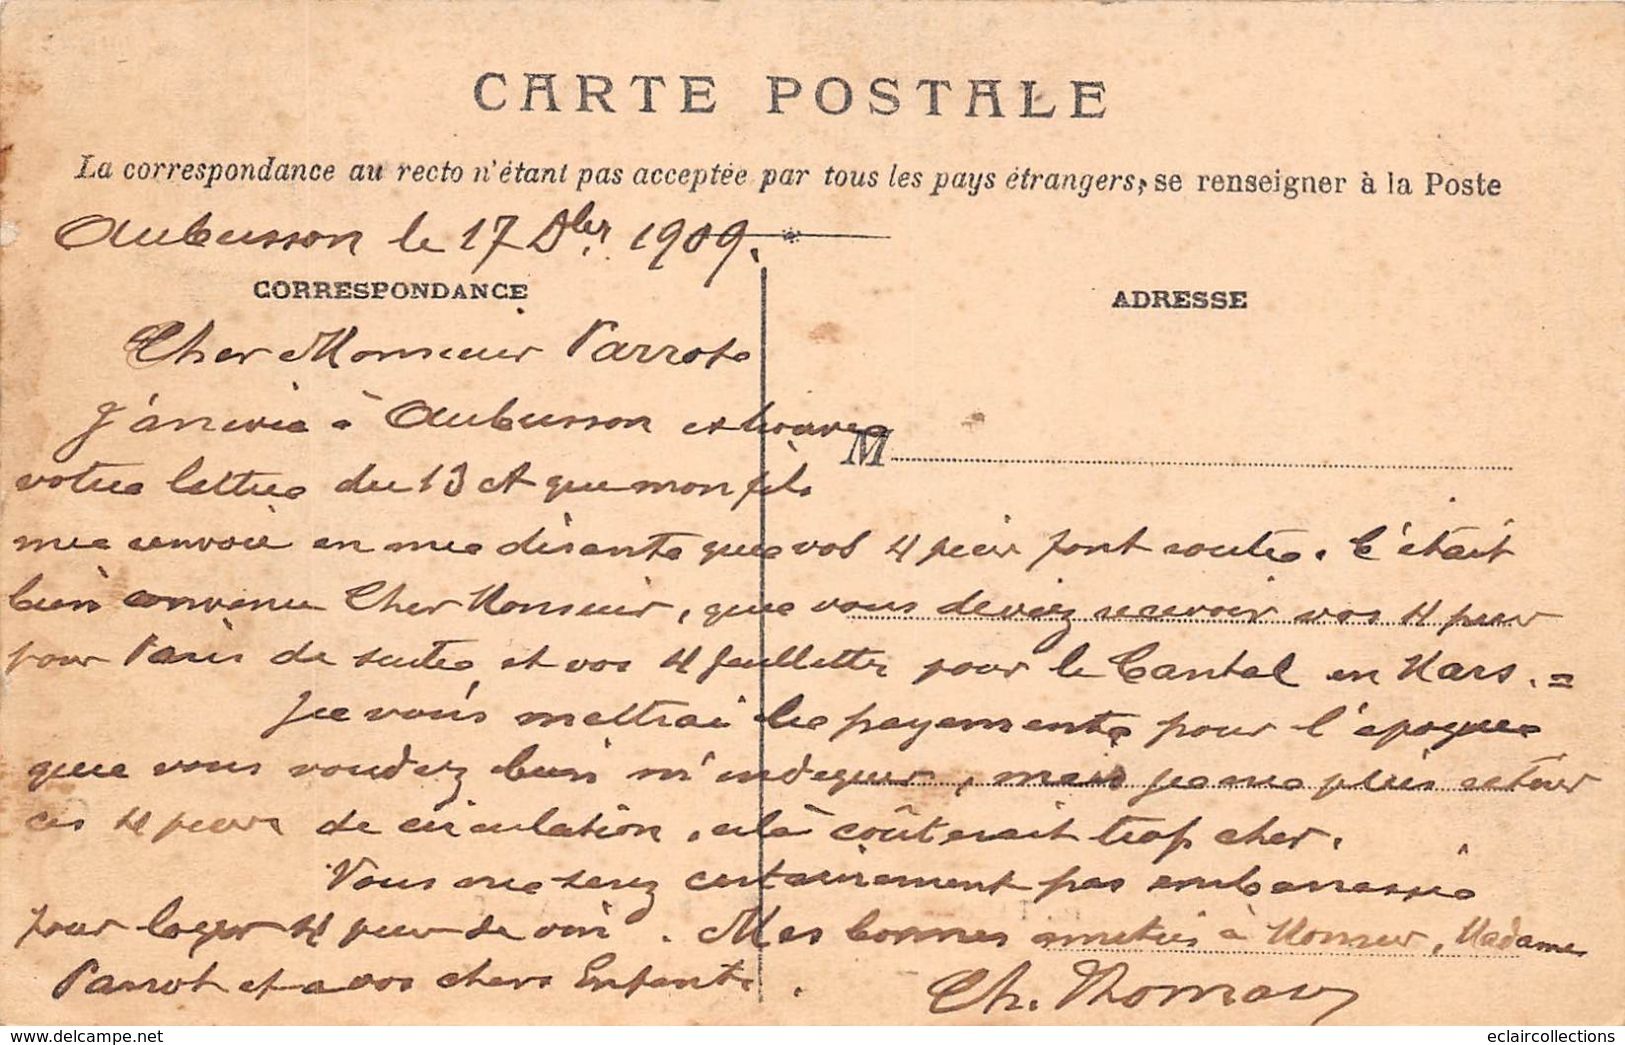 CARTE POSTALE
La correspondance au recto n'étant pas acceptée par tous les pays étrangers, se renseigner à la Poste
Aubusson le 17 Dbr. 1909.
CORRESPONDANCE
ADRESSE
Cher Monsieur Parrot
J'arrive à Aubusson et trouve
M
votre lettre du 13 ct que mon fils
me envoie en me disant que vos 4 pièces font route. C'était
bien convenu Cher Monsieur, que vous deviez recevoir vos 4 pièces
pour Paris de suite et vos 4 feuillettes pour le Cantal en Mars. =
Je vous mettrai le payement pour l'époque
que vous voudrez bien m'indiquer, mais je ne puis
ces 4 pièces de circulation, cela coûterait trop cher.
Vous ne serez certainement pas embarrassé
pour loger 4 pièces de vin. Mes bonnes amitiés à Monsieur, Madame
Parrot et a vos chers Enfants.
Ch.
eclaircollections